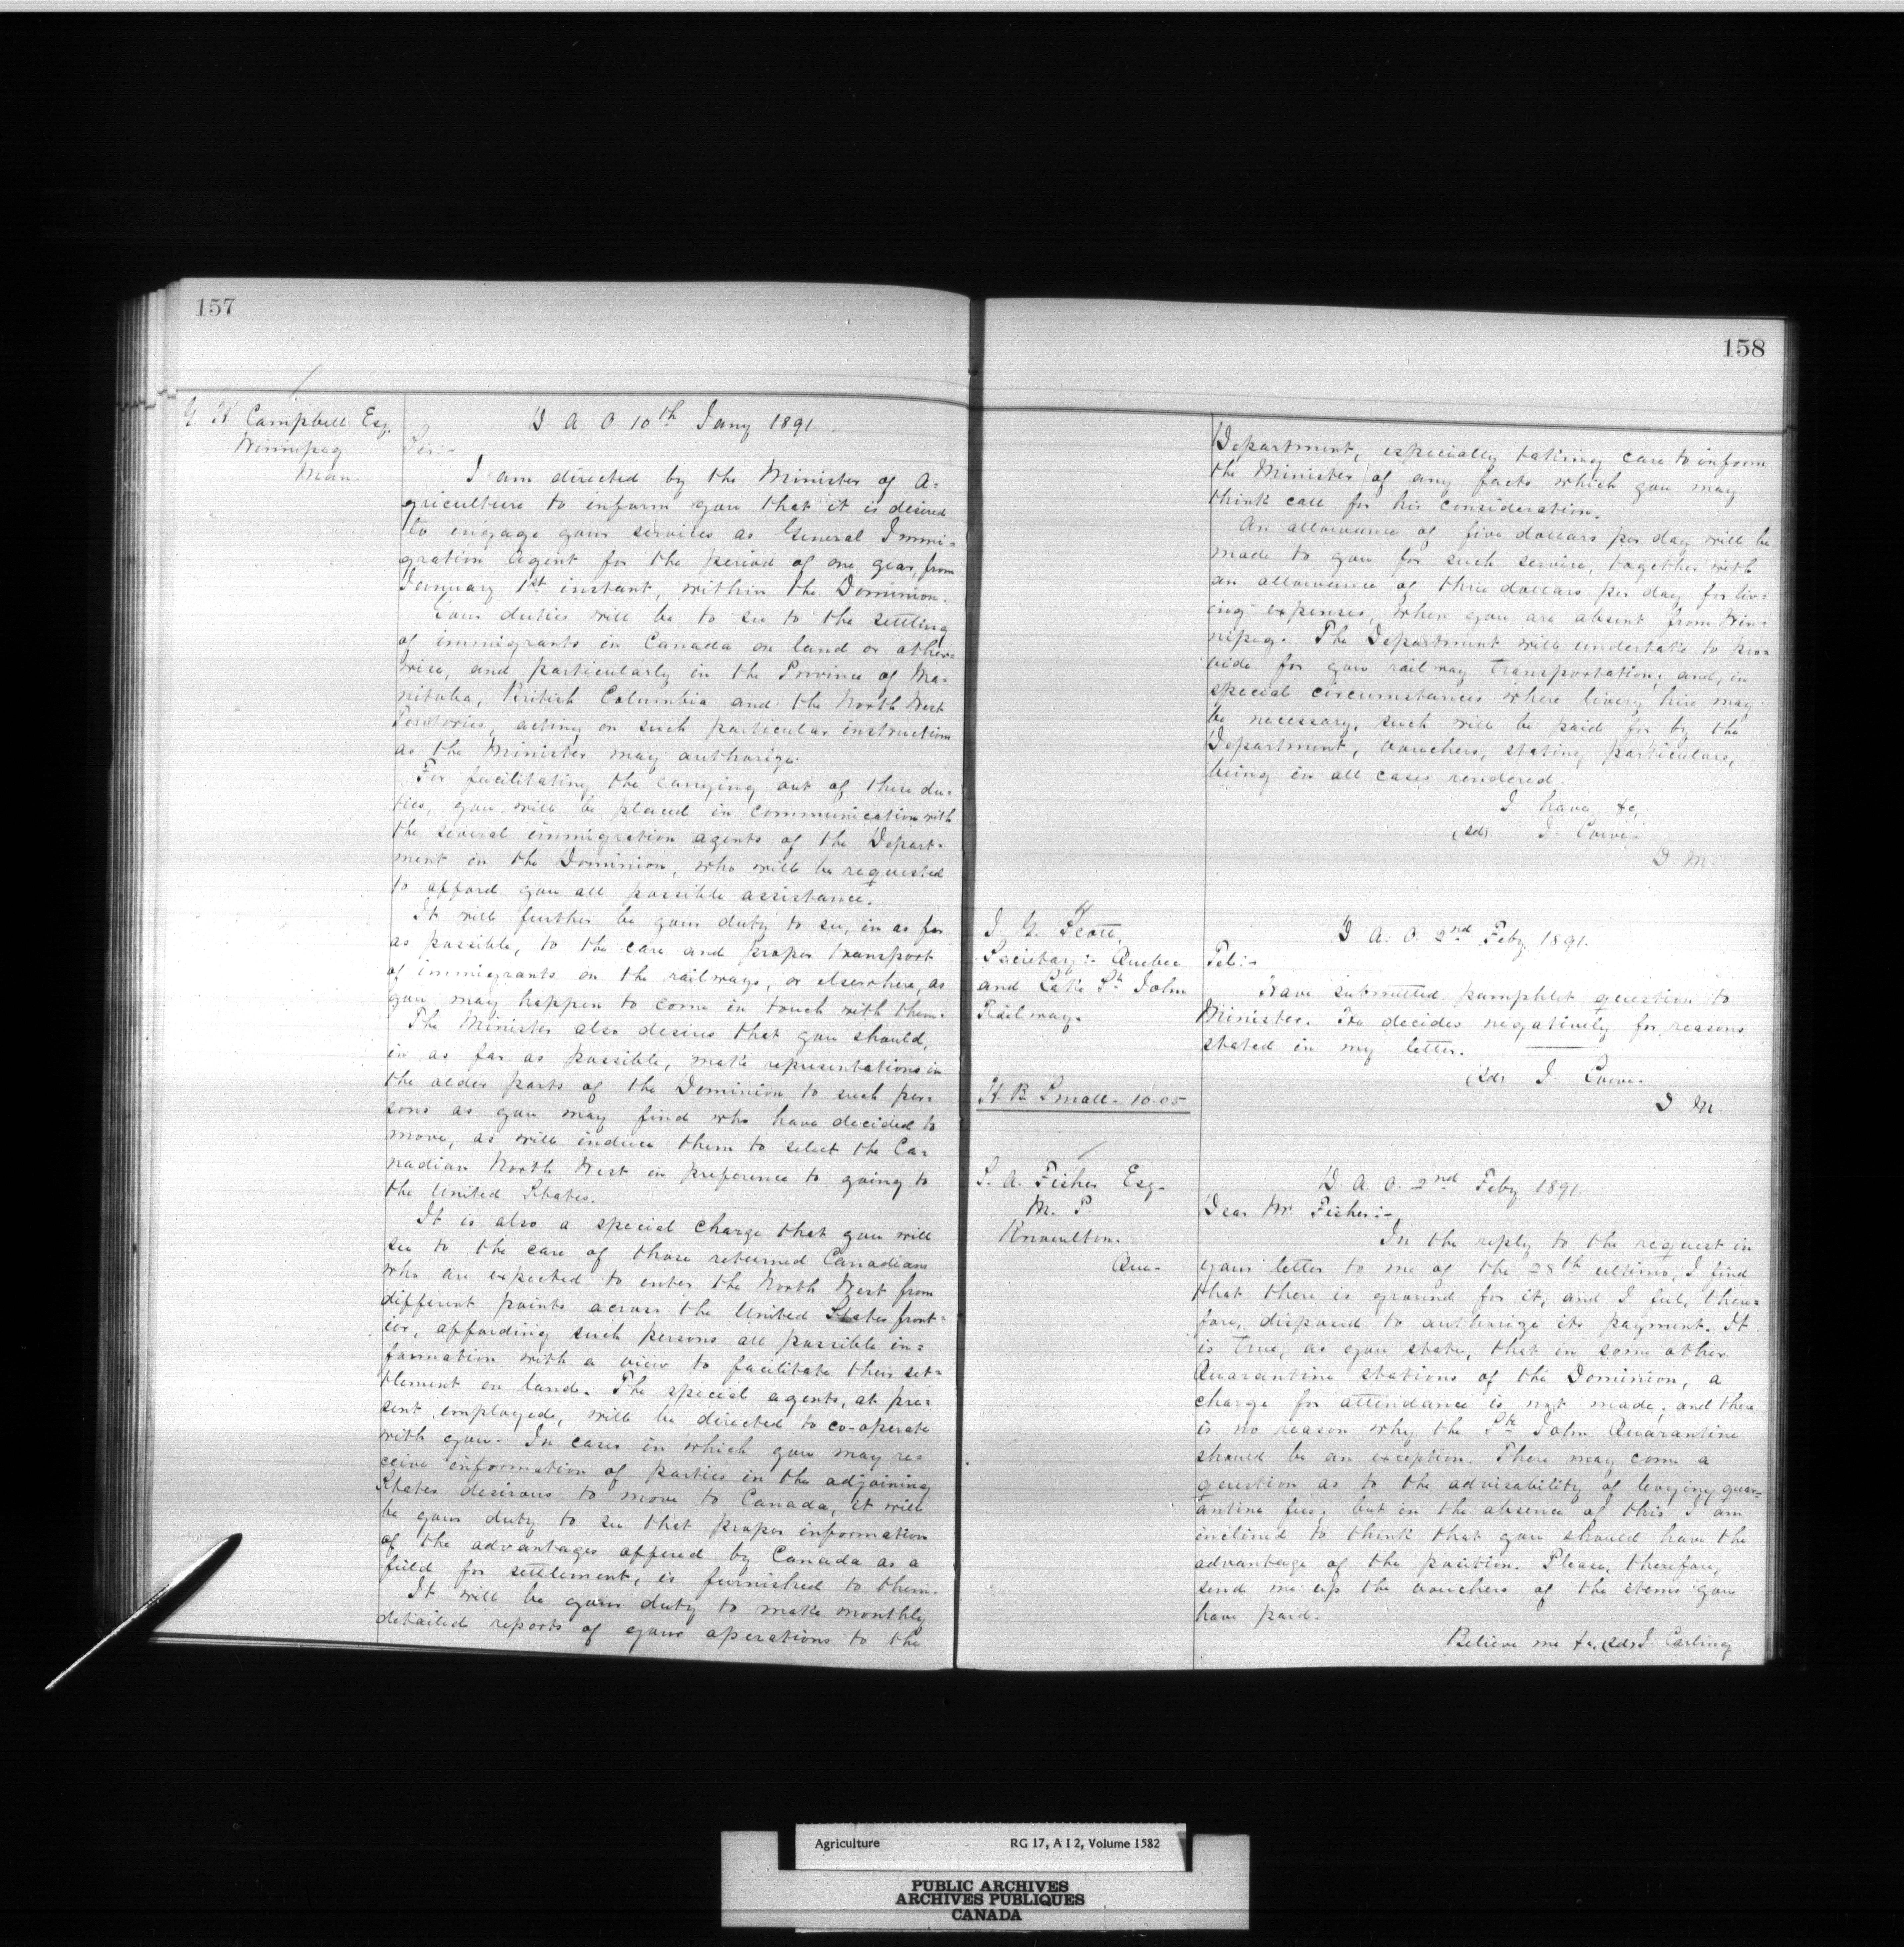 157
G. H. Campbell Esq.
Winnipeg
Man.
D. A. O. 10th Jany 1891.
Sir:-
I am directed by the Minister of A=
griculture to inform you that it is desired
to engage your services as General Immi=
gration Agent for the period of one year, from
January 1st instant, within the Dominion.
Your duties will be to see to the settling
of immigrants in Canada on land or other=
wise, and particularly in the Province of Ma=
nitoba, British Columbia and the North West
Territories, acting on such particular instruction
as the Minister may authorize.
For facilitating the carrying out of these du=
ties, you will be placed in communication with
the several immigration agents of the Depart=
ment in the Dominion, who will be requested
to afford you all possible assistance.
It will further be your duty to see, in as far
as possible, to the care and proper transport
of immigrants on the railways, or elsewhere, as
you may happen to come in touch with them.
The Minister also desires that you should,
in as far as possible, make representations in
the older parts of the Dominion to such per=
sons as you may find who have decided to
move, as will induce them to select the Ca=
nadian North West in preference to going to
the United States.
It is also a special charge that you will
see to the care of those returned Canadians
who are expected to enter the North West from
different points across the United States front=
ier, affording such persons all possible in=
formation with a view to facilitate their set=
tlement on land. The special agents, at pre=
sent employed, will be directed to co-operate
with you. In cases in which you may re=
ceive information of parties in the adjoining
States desirous to move to Canada, it will
be your duty to see that proper information
of the advantages offered by Canada as a
field for settlement, is furnished to them.
It will be your duty to make monthly
detailed reports of your operations to the
158
Department, especially taking care to inform
the Minister of any facts which you may
think call for his consideration.
An allowance of five dollars per day will be
made to you for such service, together with
an allowance of three dollars per day for liv=
ing expenses, when you are absent from Win=
nipeg. The Department will undertake to pro=
vide for your railway transportation; and, in
special circumstances where livery hire may
be necessary, such will be paid for by the
Department, vouchers, stating particulars,
being in all cases rendered.
I have &c,
(sd) J. Lowe.
D M.
J. G. Scott,
Secretary:- Quebec
and Lake St. John
Railway.
D. A. O. 2nd Feby 1891.
Tel:-
Have submitted pamphlet question to
Minister. He decides negatively for reasons
stated in my letter.
(sd) J. Lowe.
D M.
H. B. Small. 10.05
S. A. Fisher Esq.
M. P.
Knowlton.
Que.
D. A. O. 2nd Feby 1891.
Dear Mr Fisher:-,
In the reply to the request in
your letter to me of the 28th ultimo, I find
that there is ground for it, and I feel, there=
fore, disposed to authorize its payment. It
is true, as you state, that in some other
Quarantine stations of the Dominion, a
charge for attendance is not made; and there
is no reason why the St. John Quarantine
should be an exception. There may come a
question as to the advisability of levying quar=
antine fees; but in the absence of this I am
inclined to think that you should have the
advantage of the position. Please, therefore,
send me up the vouchers of the items you
have paid.
Believe me &c, (sd) J. Carling
Agriculture RG 17, A I 2, Volume 1582
PUBLIC ARCHIVES
ARCHIVES PUBLIQUES
CANADA